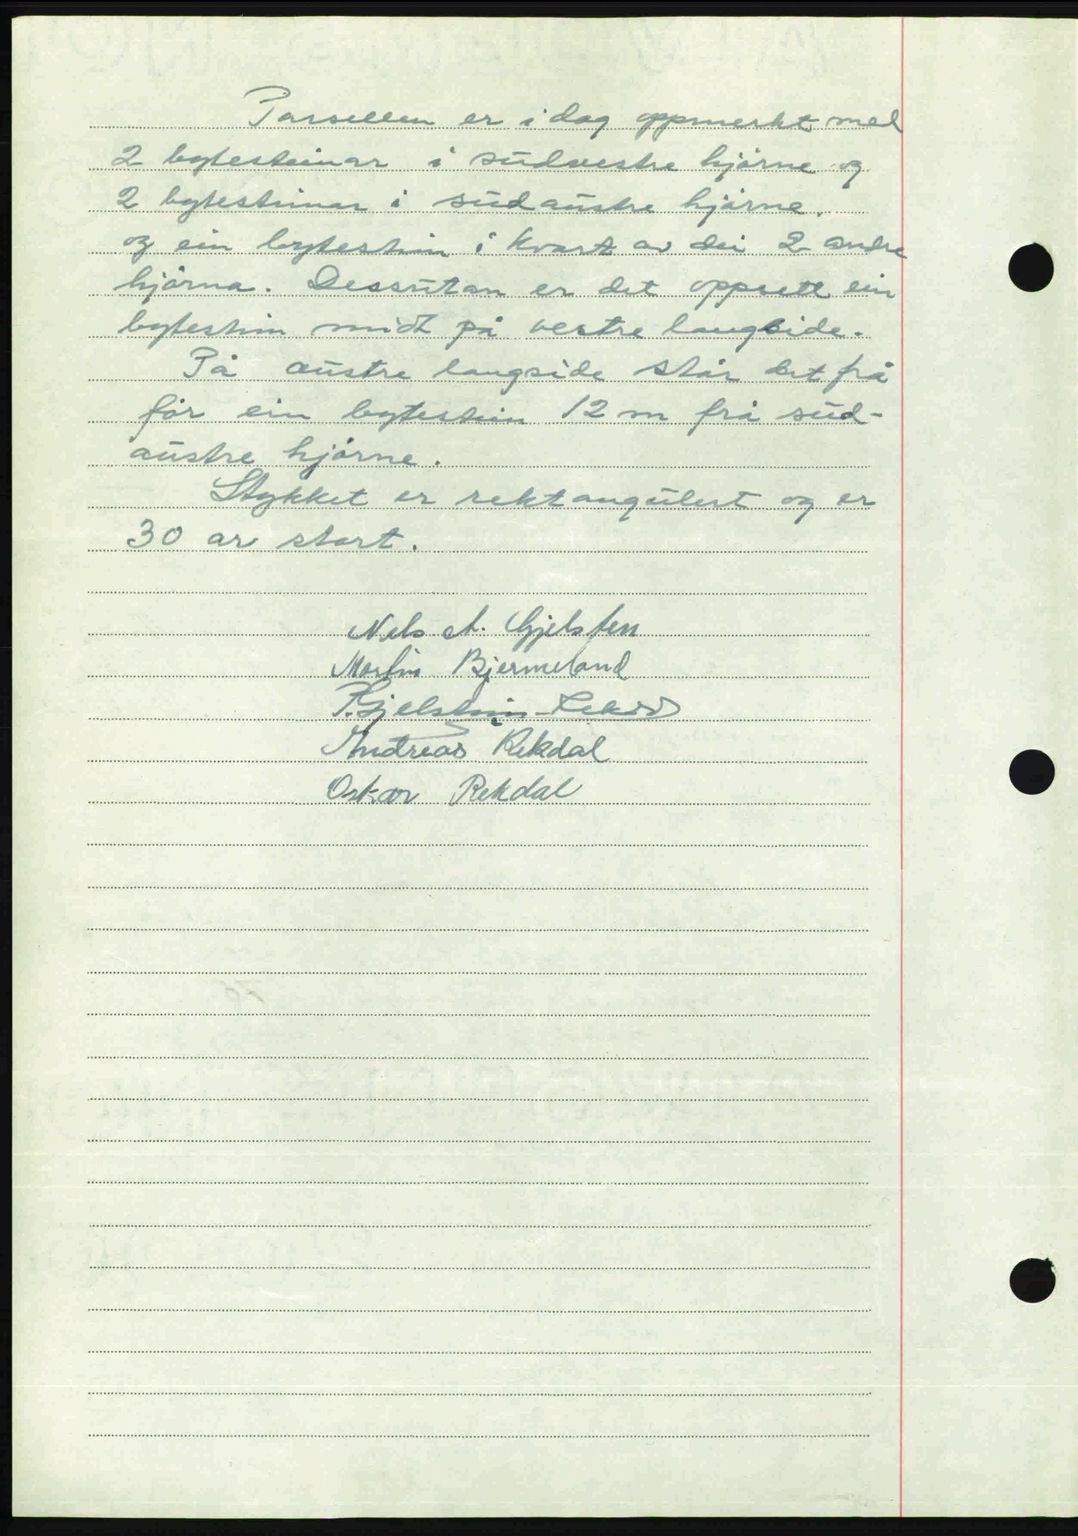 Parsellen er i dag oppmerkt med
2 bytesteinar i südvestre hjörne og
2 bytesteinar i südaüstre hjörne.
og ein bytestein i kvart av dei 2 andre
hjörna. Dessütan er det oppsett ein
bytestein midt på vestre langside.
På aüstre langside står det frå
för ein bytestein 12 m frå süd-
aüstre hjörne.
Stykket er rektangülert og er
30 ar stort.
Nils A. Gjelsten
Martin Bjermeland
P. Gjelstein
Andreas Rekdal
Oskar Rekdal